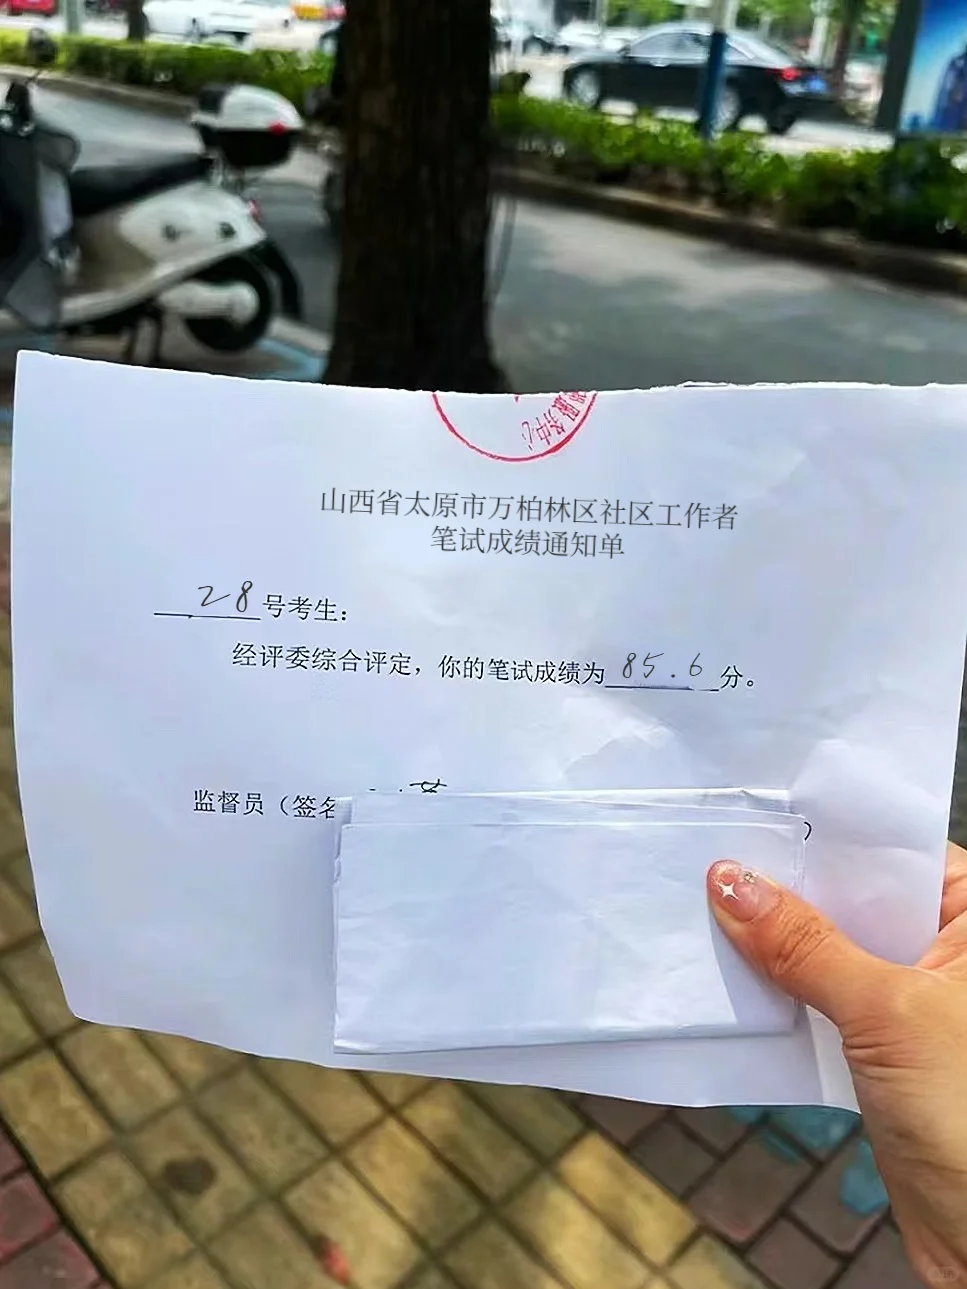 服务中心
山西省太原市万柏林区社区工作者
笔试成绩通知单
28号考生：
经评委综合评定，你的笔试成绩为85.6分。
监督员（签名